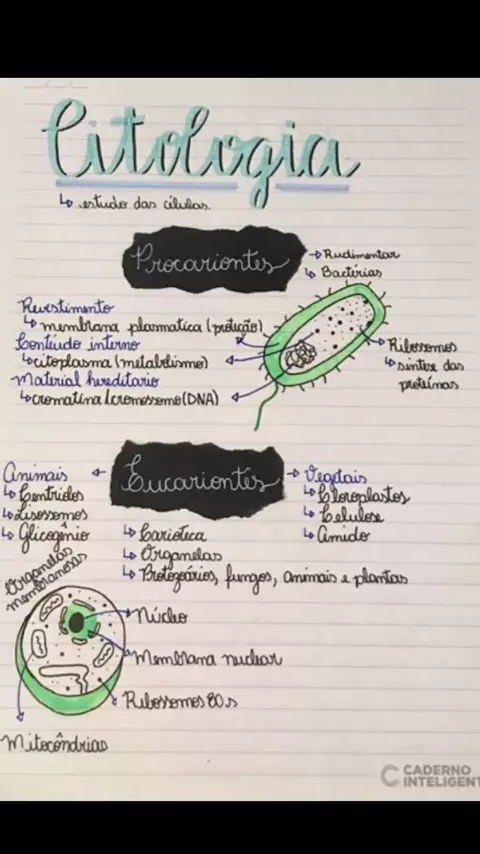 Citologia
↳ estudo das células.
Procariontes
→ Rudimentar
↳ Bactérias
Revestimento
↳ membrana plasmatica (proteção)
Conteúdo interno
↳ citoplasma (metabolismo)
Material hereditario
↳ cromatina/cromossomo (DNA)
Ribossomos
↳ sintese das
proteínas
Eucariontes
Animais
↳ Centriolos
↳ Lisossomos
↳ Glicogênio
Vegetais
↳ Cloroplastos
↳ Celulose
↳ Amido
↳ Carioteca
↳ Organelas
↳ Protozoários, fungos, animais e plantas
Organelas
membranosas
Núcleo
Membrana nuclear
Ribossomos 80s
Mitocôndrias
CADERNO
INTELIGENT